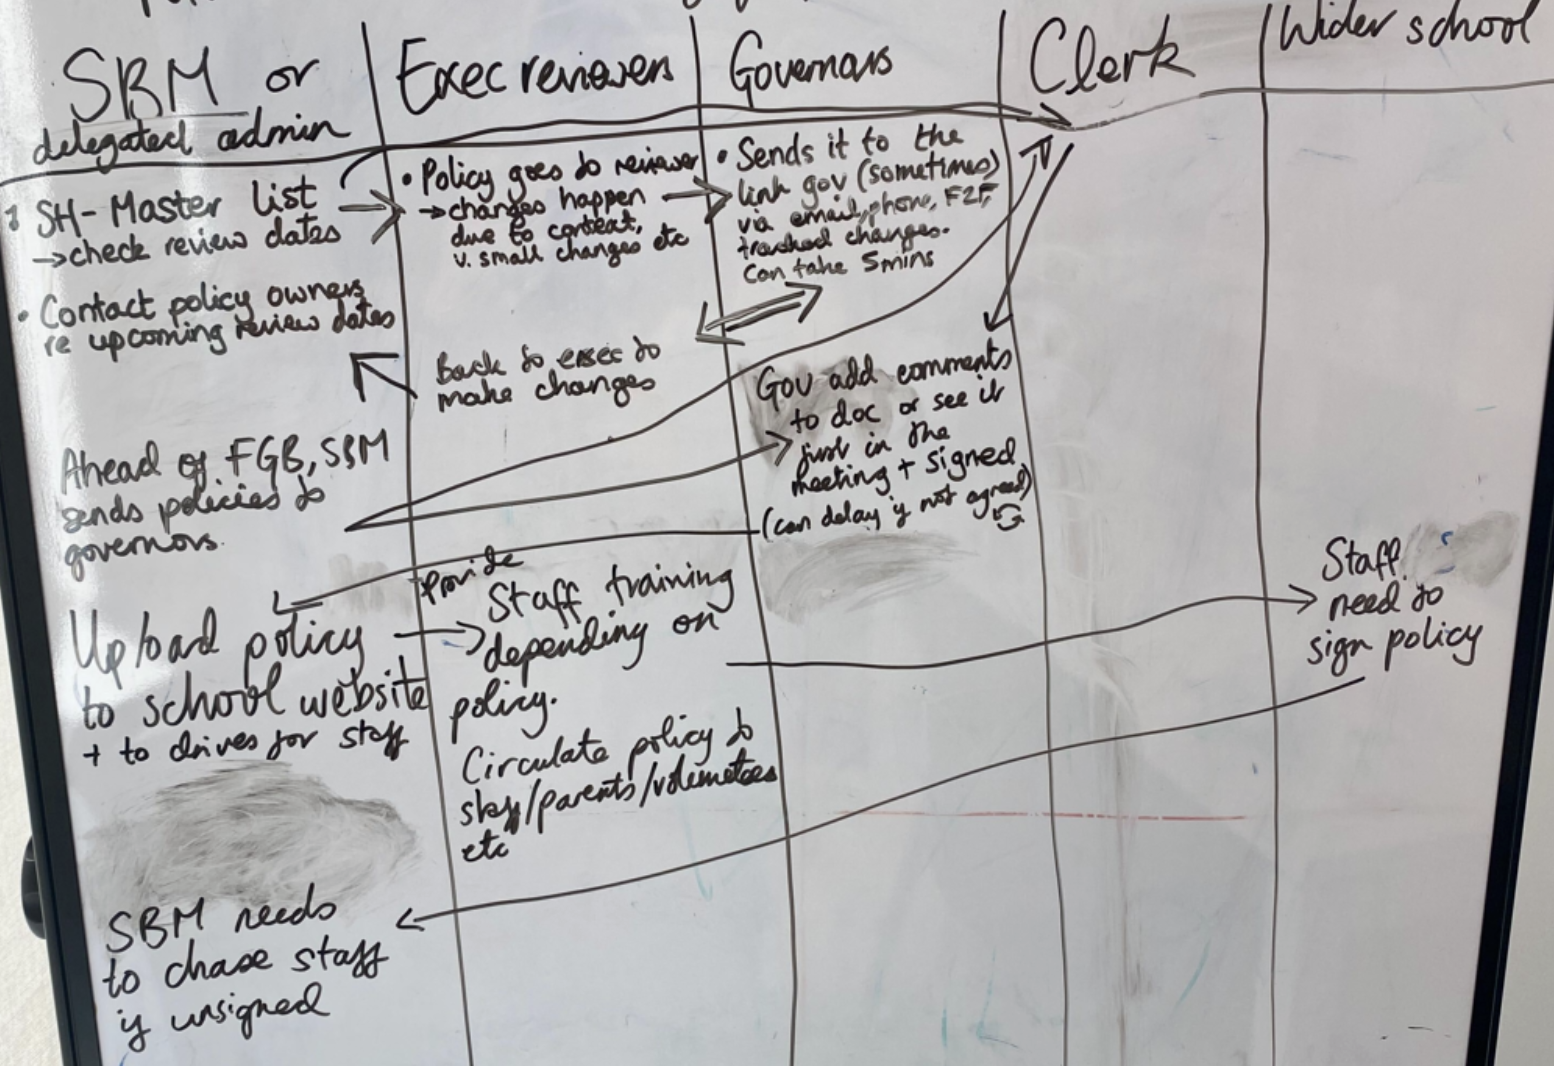 SBM or
delegated admin
Exec reviewers
Governors
Clerk
Wider school
SH- Master list
→check review dates
• Contact policy owners
re upcoming review dates
• Policy goes to reviewer
→changes happen
due to context,
v. small changes etc
• Sends it to the
link gov (sometimes)
via email, phone, F2F,
tracked changes.
Can take 5mins
Back to exec to
make changes
Ahead of FGB, SBM
sends policies to
governors.
Gov add comments
to doc or see it
just in the
meeting + signed
(can delay if not agreed)
Upload policy
to school website
+ to drives for staff
Provide
Staff training
depending on
policy.
Circulate policy to
staff/parents/volunteers
etc
Staff
need to
sign policy
SBM needs
to chase staff
if unsigned